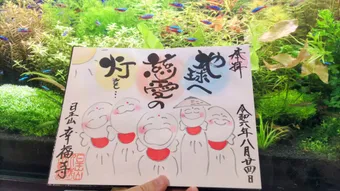 奉拝
地球へ
慈愛の
灯を…
令和六年八月廿四日
日王山 幸福寺